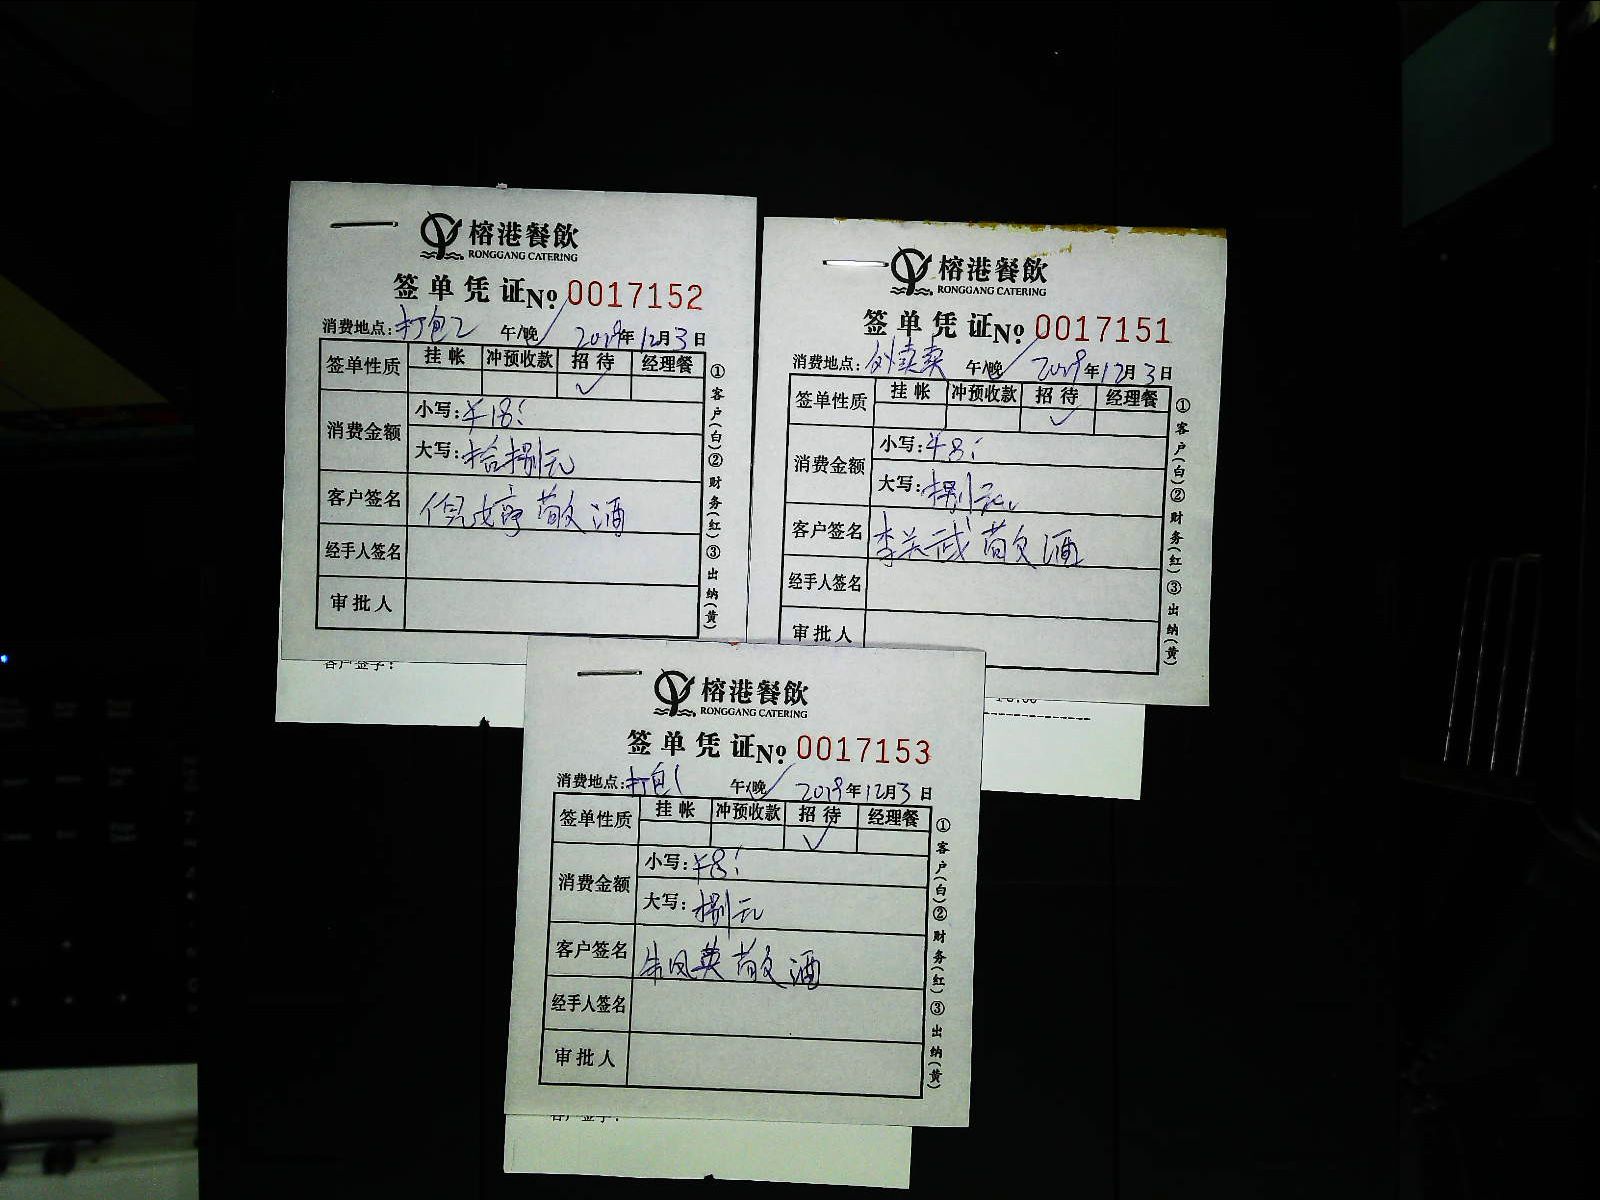 榕港餐飲
RONGGANG CATERING
签单凭证No. 0017152
消费地点: 打包2 午/晚 2019年12月3日
签单性质 挂帐 冲预收款 招待 经理餐
✓
消费金额 小写: ¥18:
大写: 拾捌元
客户签名 倪婷 敬酒
经手人签名
审批人
①客户(白)②财务(红)③出纳(黄)
客户签字:
榕港餐飲
RONGGANG CATERING
签单凭证No. 0017151
消费地点: 外卖 午/晚 2019年12月3日
签单性质 挂帐 冲预收款 招待 经理餐
✓
消费金额 小写: ¥8:
大写: 捌元
客户签名 李关武 敬酒
经手人签名
审批人
①客户(白)②财务(红)③出纳(黄)
榕港餐飲
RONGGANG CATERING
签单凭证No. 0017153
消费地点: 打包1 午/晚 2019年12月3日
签单性质 挂帐 冲预收款 招待 经理餐
✓
消费金额 小写: ¥8:
大写: 捌元
客户签名 朱凤英 敬酒
经手人签名
审批人
①客户(白)②财务(红)③出纳(黄)
客户签字: